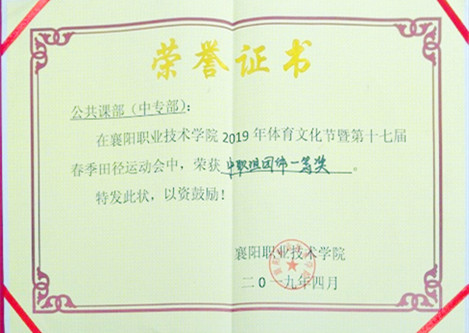 荣誉证书
公共课部（中专部）：
在襄阳职业技术学院2019年体育文化节暨第十七届
春季田径运动会中，荣获 中职组团体一等奖 。
特发此状，以资鼓励！
襄阳职业技术学院
二0一九年四月